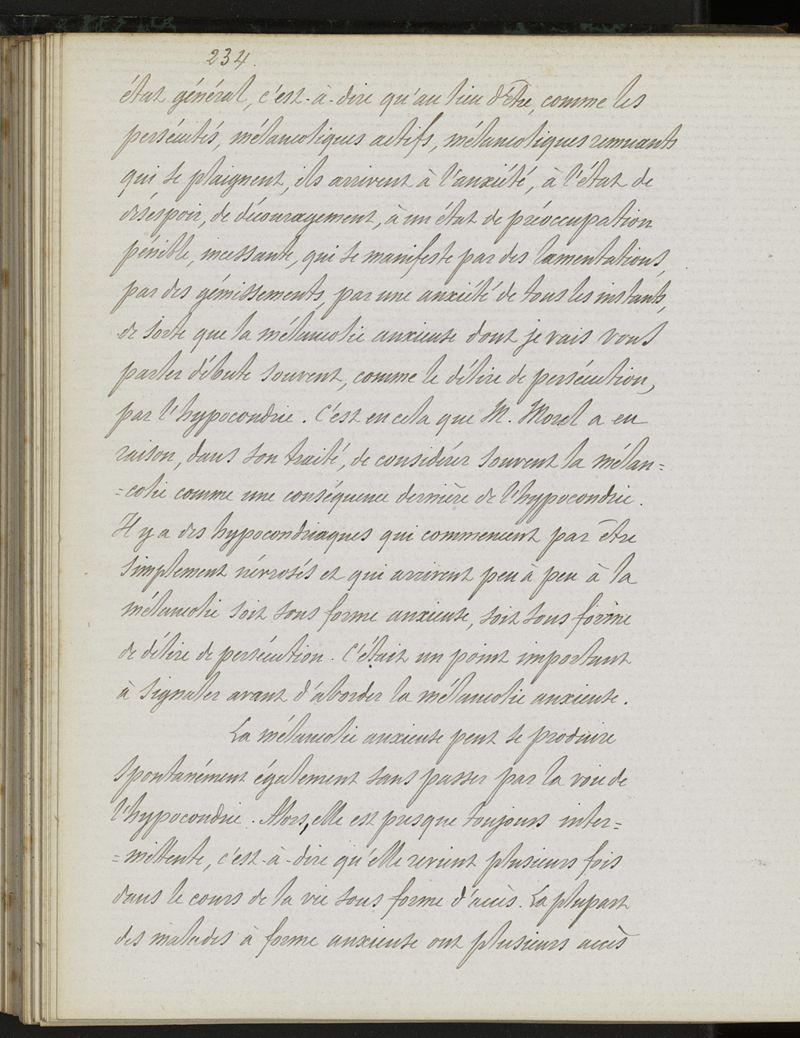 234.
état général, c'est-à-dire qu'au lieu d'être, comme les
persécutés, mélancoliques actifs, mélancoliques remuants
qui se plaignent, ils arrivent à l'anxiété, à l'état de
désespoir, de découragement, à un état de préoccupation
pénible, incessante, qui se manifeste par des lamentations,
par des gémissements, par une anxiété de tous les instants,
de sorte que la mélancolie anxieuse dont je vais vous
parler débute souvent, comme le délire de persécution,
par l'hypocondrie. C'est en cela que M. Morel a eu
raison, dans son traité, de considérer souvent la mélan=
=colie comme une conséquence dernière de l'hypocondrie.
Il y a des hypocondriaques qui commencent par être
simplement névrosés et qui arrivent peu à peu à la
mélancolie soit sous forme anxieuse, soit sous forme
de délire de persécution. C'était un point important
à signaler avant d'aborder la mélancolie anxieuse.
La mélancolie anxieuse peut se produire
spontanément également sans passer par la voie de
l'hypocondrie. Alors, elle est presque toujours inter=
=mittente, c'est-à-dire qu'elle revient plusieurs fois
dans le cours de la vie sous forme d'accès. La plupart
des malades à forme anxieuse ont plusieurs accès